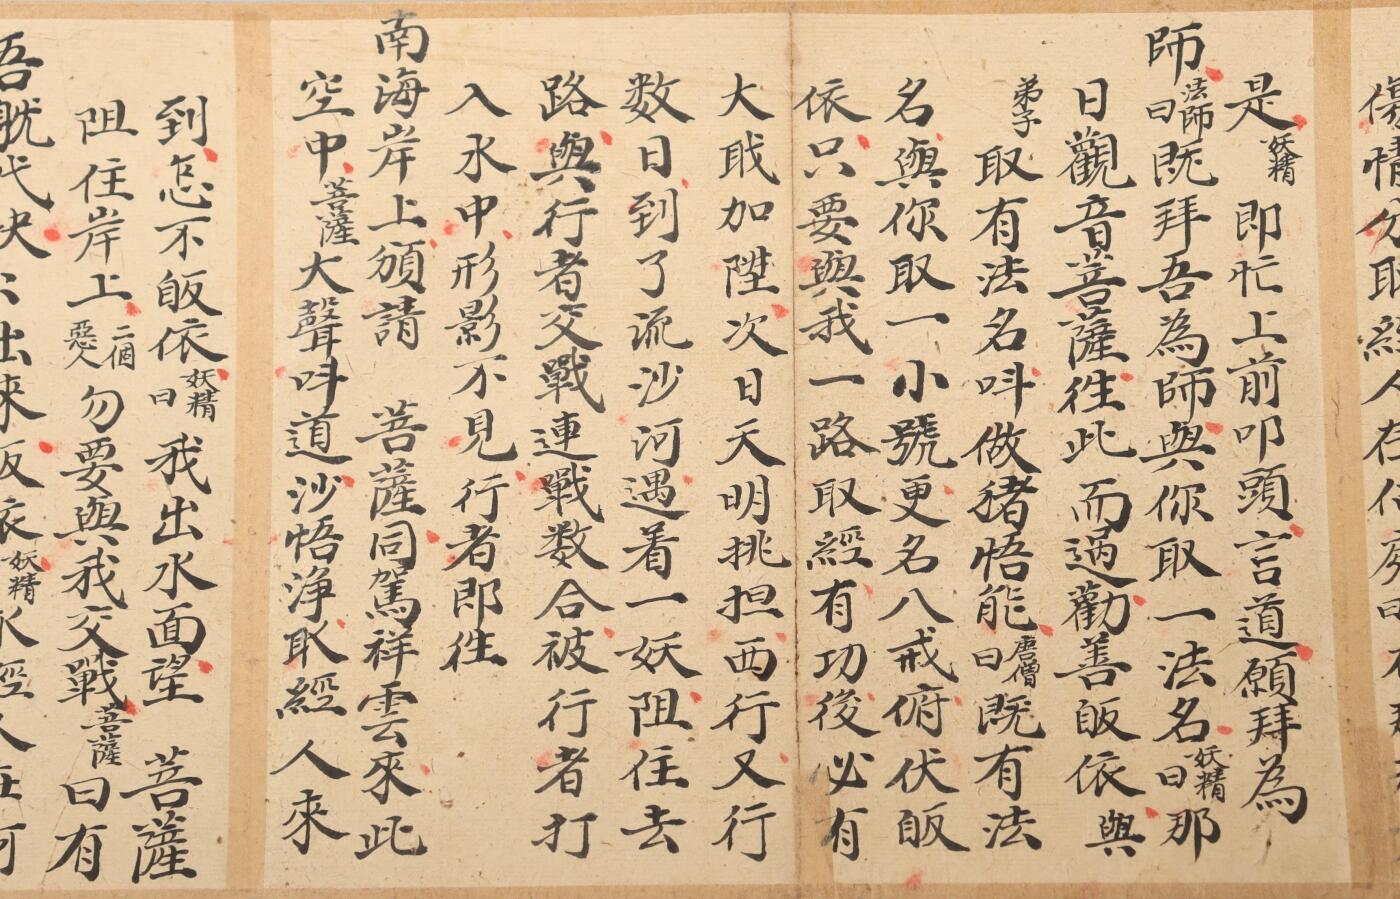 傷情分取經人在何處
是妖精即忙上前叩頭言道願拜為
師法師曰既拜吾為師與你取一法名妖精曰那
日觀音菩薩徃此而過勸善皈依與
弟子取有法名呌做猪悟能唐僧曰既有法
名與你取一小號更名八戒俯伏皈
依只要與我一路取經有功後必有
大戝加陞次日天明挑担西行又行
数日到了流沙河遇着一妖阻住去
路與行者交戰連戰数合被行者打
入水中形影不見行者即徃
南海岸上頒請 菩薩同駕祥雲來此
空中菩薩大聲呌道沙悟淨取經人來
到怎不皈依妖精曰我出水面望 菩薩
阻住岸上二個惡人勿要與我交戰菩薩曰有
吾既代快出來皈依妖精取經人在何